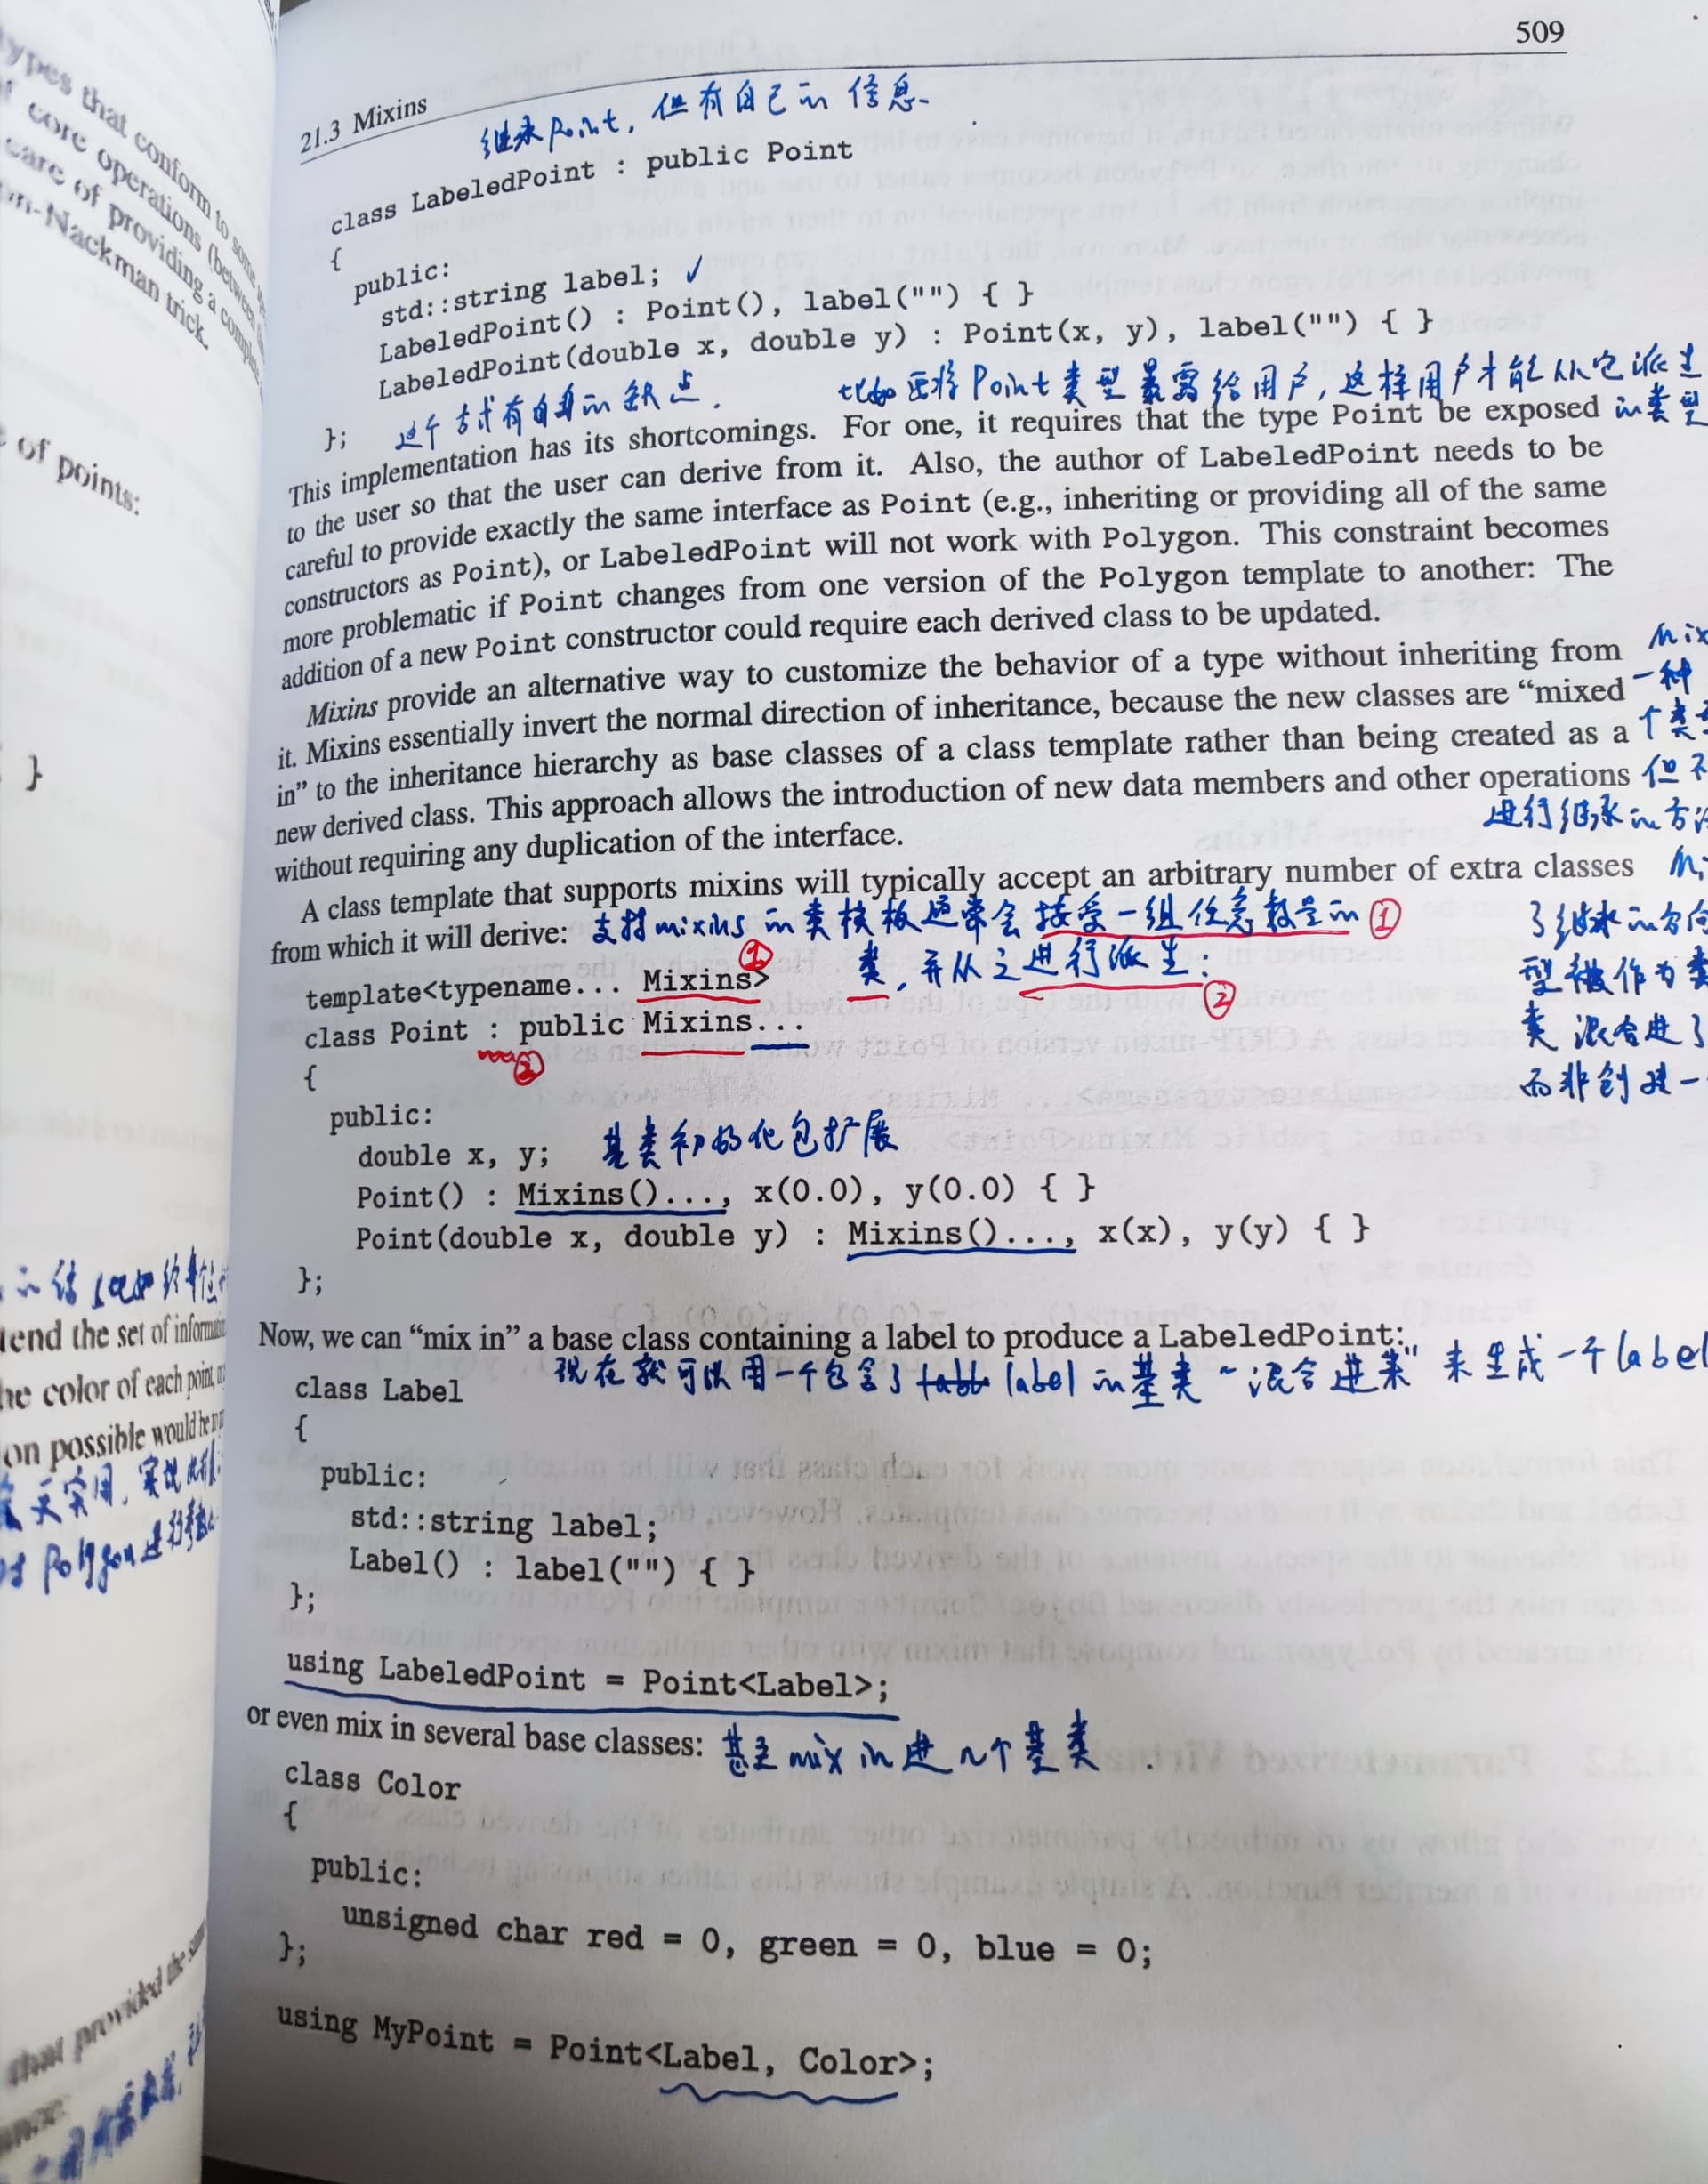 509
21.3 Mixins
继承Point, 但有自己的信息.
class LabeledPoint : public Point
{
public:
std::string label; ✓
LabeledPoint() : Point(), label("") { }
LabeledPoint(double x, double y) : Point(x, y), label("") { }
};
这个方式有自身的缺点.
比如要将Point类型暴露给用户, 这样用户才能从它派生
的类型
This implementation has its shortcomings. For one, it requires that the type Point be exposed
to the user so that the user can derive from it. Also, the author of LabeledPoint needs to be
careful to provide exactly the same interface as Point (e.g., inheriting or providing all of the same
constructors as Point), or LabeledPoint will not work with Polygon. This constraint becomes
more problematic if Point changes from one version of the Polygon template to another: The
addition of a new Point constructor could require each derived class to be updated.
Mixins provide an alternative way to customize the behavior of a type without inheriting from
it. Mixins essentially invert the normal direction of inheritance, because the new classes are “mixed
in” to the inheritance hierarchy as base classes of a class template rather than being created as a
new derived class. This approach allows the introduction of new data members and other operations
without requiring any duplication of the interface.
一种
个类
但不
进行继承的方法
A class template that supports mixins will typically accept an arbitrary number of extra classes
from which it will derive:
支持mixins的类模板通常会接受一组任意数量的 ①
类, 并从之进行派生: ②
了继承的方向
型被作为类
类混合进了
而非创建一
①
template<typename... Mixins>
class Point : public Mixins...
②
{
public:
double x, y;
基类初始化包扩展
Point() : Mixins()..., x(0.0), y(0.0) { }
Point(double x, double y) : Mixins()..., x(x), y(y) { }
};
Now, we can “mix in” a base class containing a label to produce a LabeledPoint:
现在就可以用一个包含了label的基类“混合进来”来生成一个label
class Label
{
public:
std::string label;
Label() : label("") { }
};
using LabeledPoint = Point<Label>;
or even mix in several base classes:
甚至mix in进n个基类.
class Color
{
public:
unsigned char red = 0, green = 0, blue = 0;
};
using MyPoint = Point<Label, Color>;
types that conform to some
core operations (between
care of providing a
Nackman trick.
of points:
}
the set of information
color of each point,
on possible would be
Polygon进行
that provided the same